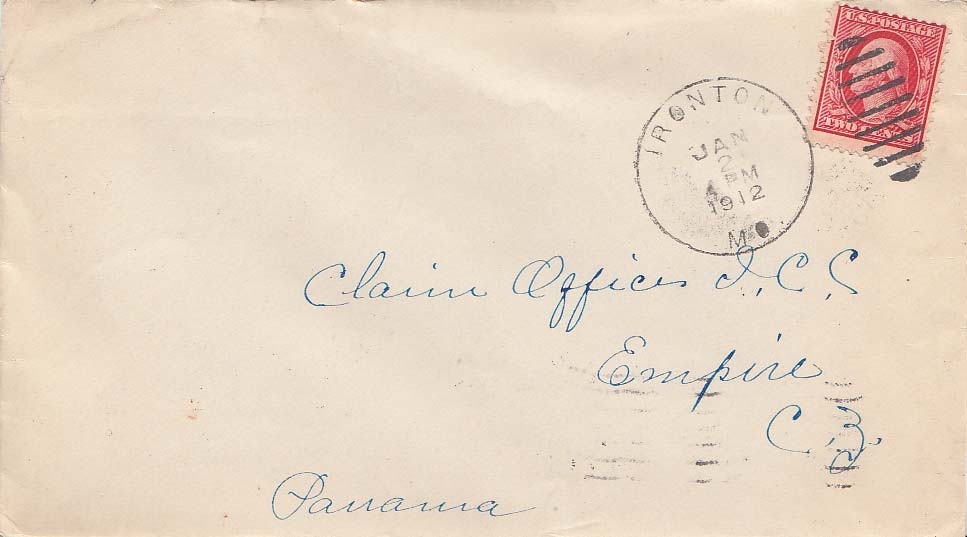 U.S. POSTAGE
TWO CENTS
IRONTON
JAN
2
4 PM
1912
MO.
Claim Officer I.C.C
Empire
C.Z.
Panama